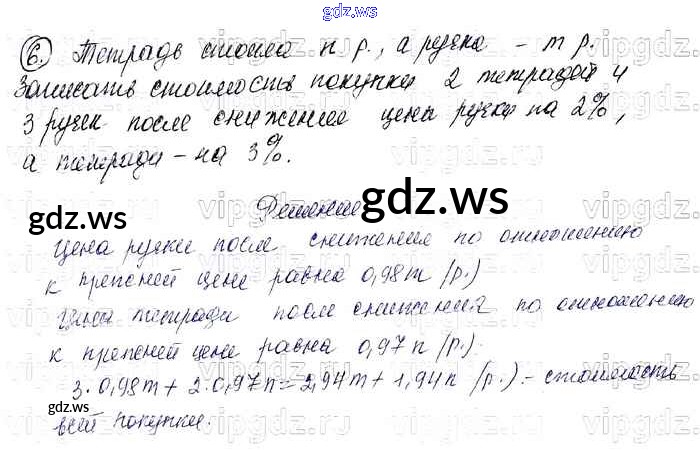 gdz.ws
6. Тетрадь стоила n р., а ручка - m р.
Записать стоимость покупки 2 тетрадей и
3 ручек после снижения цены ручки на 2%,
а тетради - на 3%.
gdz.ws
gdz.ws
Решение
Цена ручки после снижения по отношению
к прежней цене равна 0,98m (р.)
Цена тетради после снижения по отношению
к прежней цене равна 0,97n (р.)
3·0,98m + 2·0,97n = 2,94m + 1,94n (р.) - стоимость
всей покупки.
gdz.ws